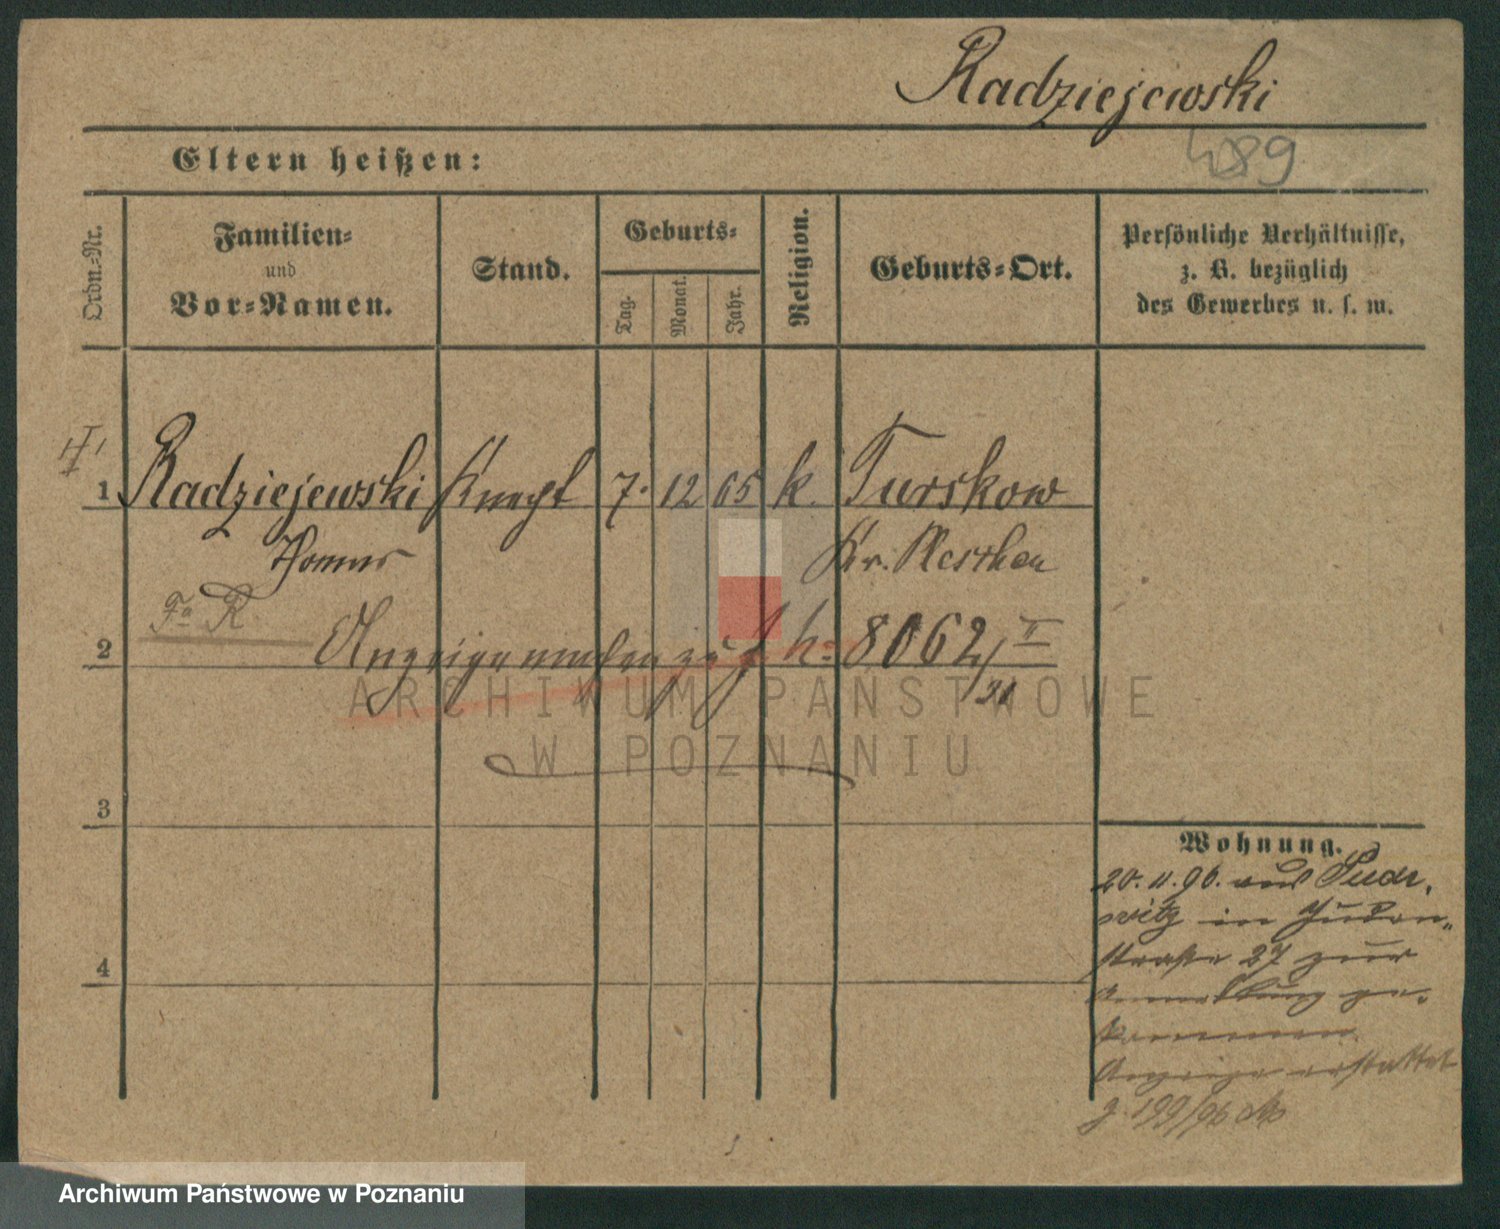 Radziejewski
489
Eltern heißen:
Ordn.=Nr.
Familien=
und
Vor=Namen.
Stand.
Geburts=
Tag.
Monat.
Jahr.
Religion.
Geburts=Ort.
Persönliche Verhältnisse,
z. B. bezüglich
des Gewerbes u. s. w.
1 Radziejewski Knecht 7. 12 65 k. Turskow
Thomas Kr. Pleschen
R
2 8062/II
3
ARCHIWUM PAŃSTWOWE
W POZNANIU
Wohnung.
20.11.96. aus Pude-
witz in Juden-
straße 27 zur
Anmeldung ge-
kommen
Anzeige erstattet
J. 199/96
4
Archiwum Państwowe w Poznaniu